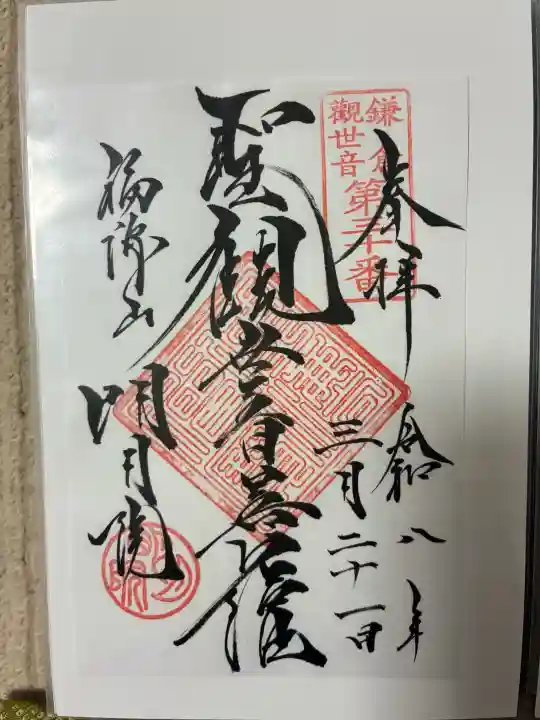 鎌倉
觀世音
第三十番
奉拝
令和八年
三月二十一日
聖観世音菩薩
福源山
明月院